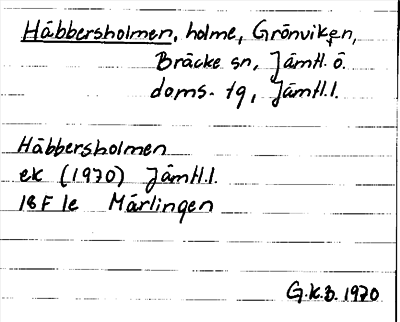 Häbbersholmen, holme, Grönviken,
Bräcke sn, Jämtl. ö.
doms. tg, Jämtl. l.
Häbbersholmen
ek (1970) Jämtl. l.
18F 1e Mårlingen
G.K.B. 1970